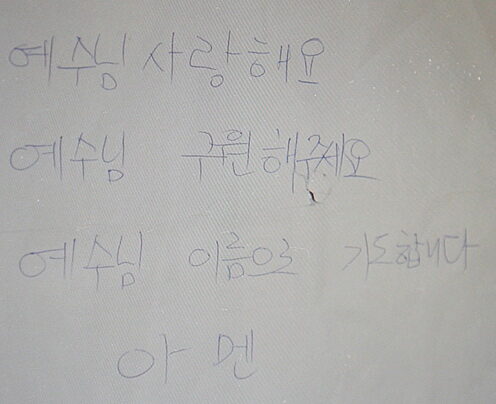 예수님 사랑해요
예수님 구원해주세요
예수님 이름으로 기도합니다
아멘